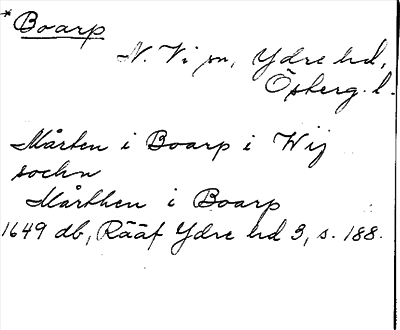 * Boarp
N. Vi sn, Ydre hd,
Österg. l.
Mårten i Boarp i Wij
sochn
Mårthen i Boarp
1649 db, Rääf Ydre hd 3, s. 188.